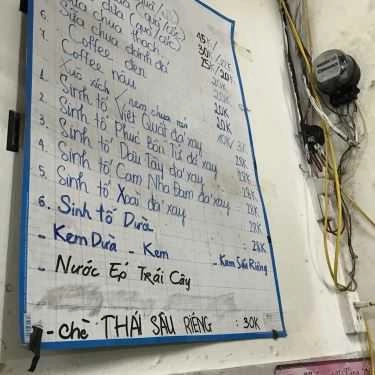 6. dừa (quả/cốc)
Sữa chua thạch 30K
7. Sữa chua đánh đá 25K/20K
Coffee đen 20K
Coffee nâu 20K
Xúc xích nem chua rán 10K
1. Sinh tố Việt Quất đá xay 28K
2. Sinh tố Phúc Bồn Tử đá xay 28K
3. Sinh tố Dâu Tây đá xay 28K
4. Sinh tố Cam Nha Đam đá xay 28K
5. Sinh tố Xoài đá xay 28K
6. Sinh Tố Dừa : 28K
- Kem Dừa - Kem - Kem Sầu Riêng
- Nước Ép Trái Cây
- chè THÁI SẦU RIÊNG : 30K